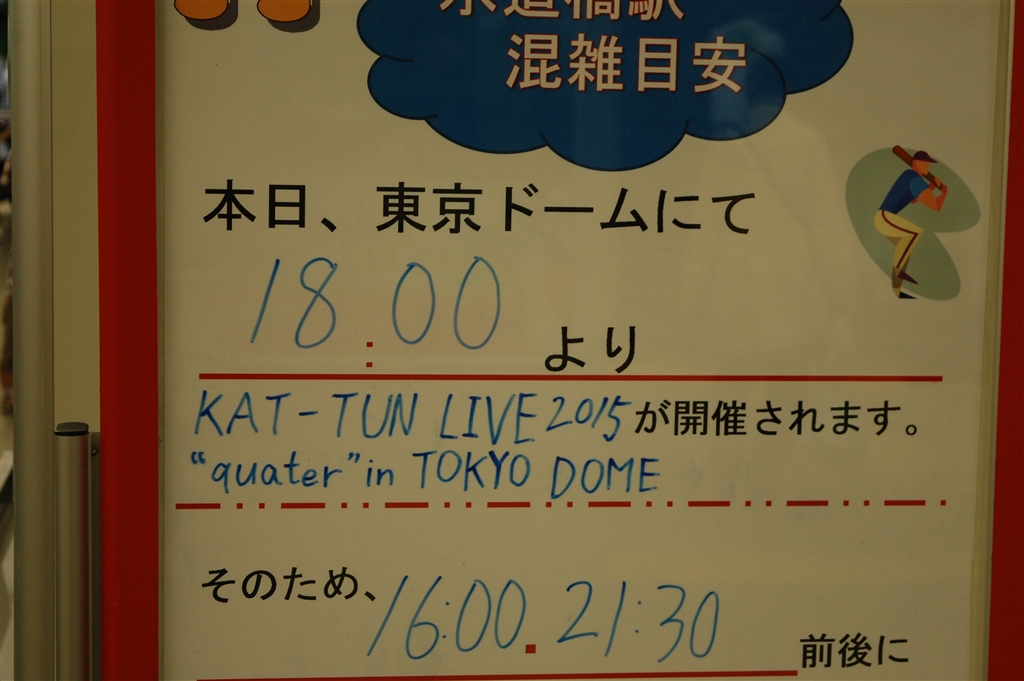 水道橋駅
混雑目安
本日、東京ドームにて
18:00より
KAT-TUN LIVE 2015が開催されます。
“quater” in TOKYO DOME
そのため、16:00.21:30前後に